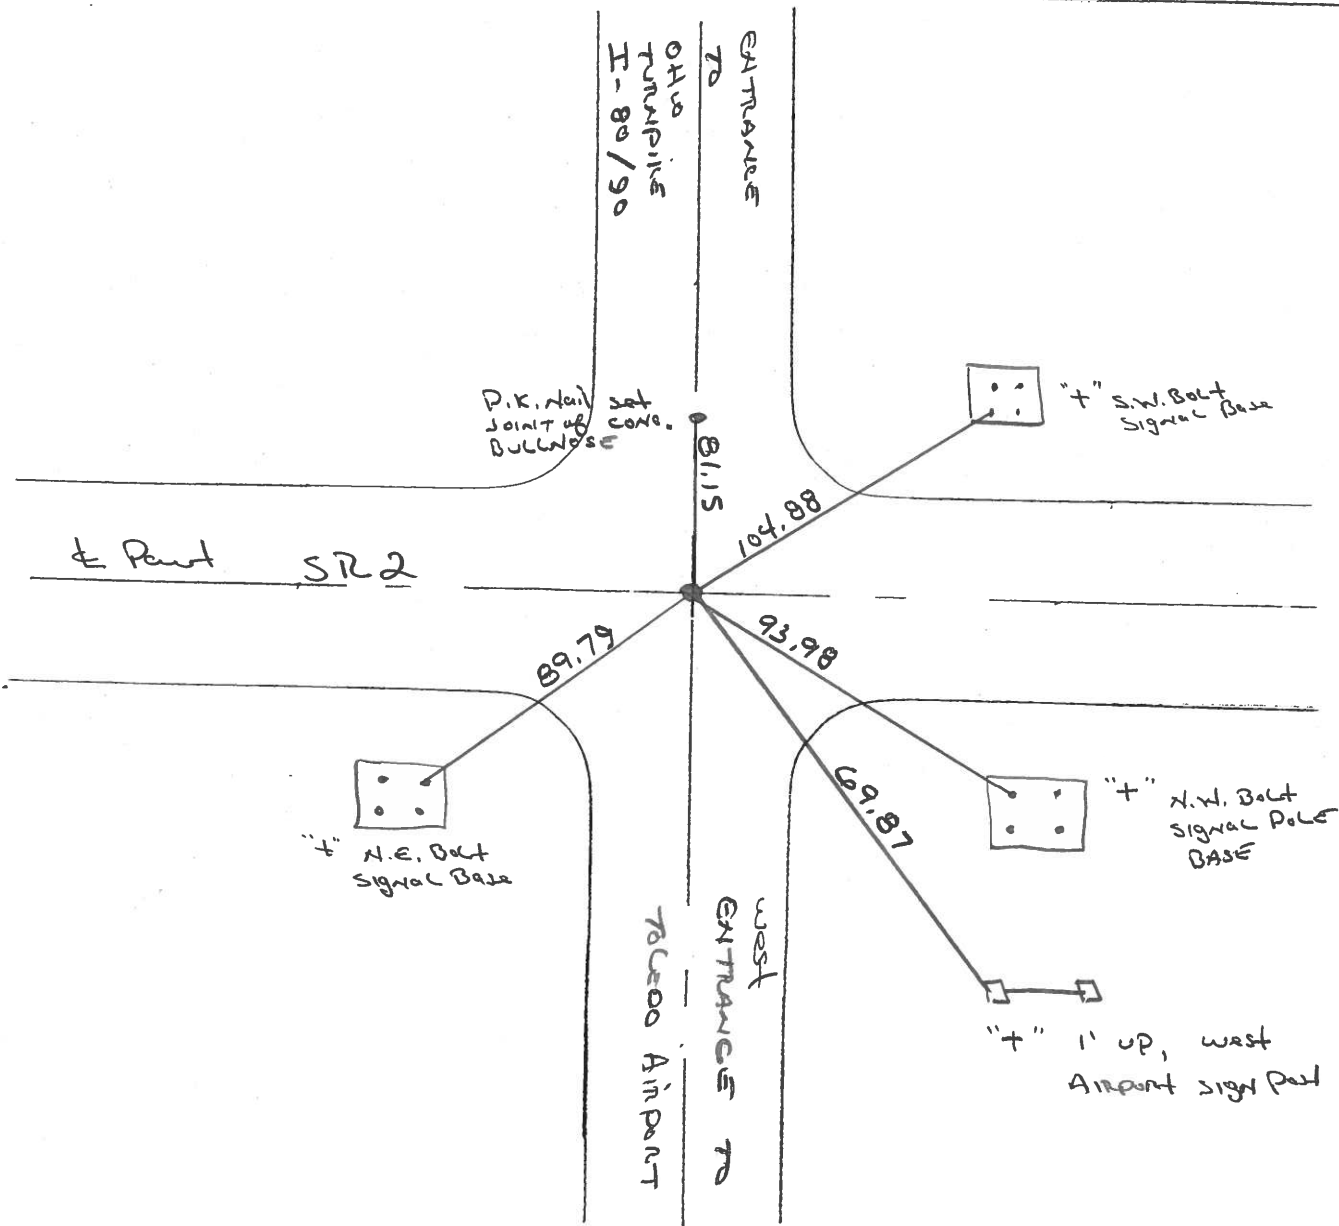 ENTRANCE
TO
OHIO
TURNPIKE
I-80/90
P.K. Nail set
JOINT of CONC.
BULLNOSE
"+" S.W. Bolt
Signal Base
81.15
104.88
℄ Pavt SR2
89.79
93.98
69.87
"+" N.E. Bolt
Signal Base
"+" N.W. Bolt
Signal Pole
BASE
West
ENTRANCE TO
TOLEDO AIRPORT
"+" 1' UP, West
AIRPORT SIGN Post